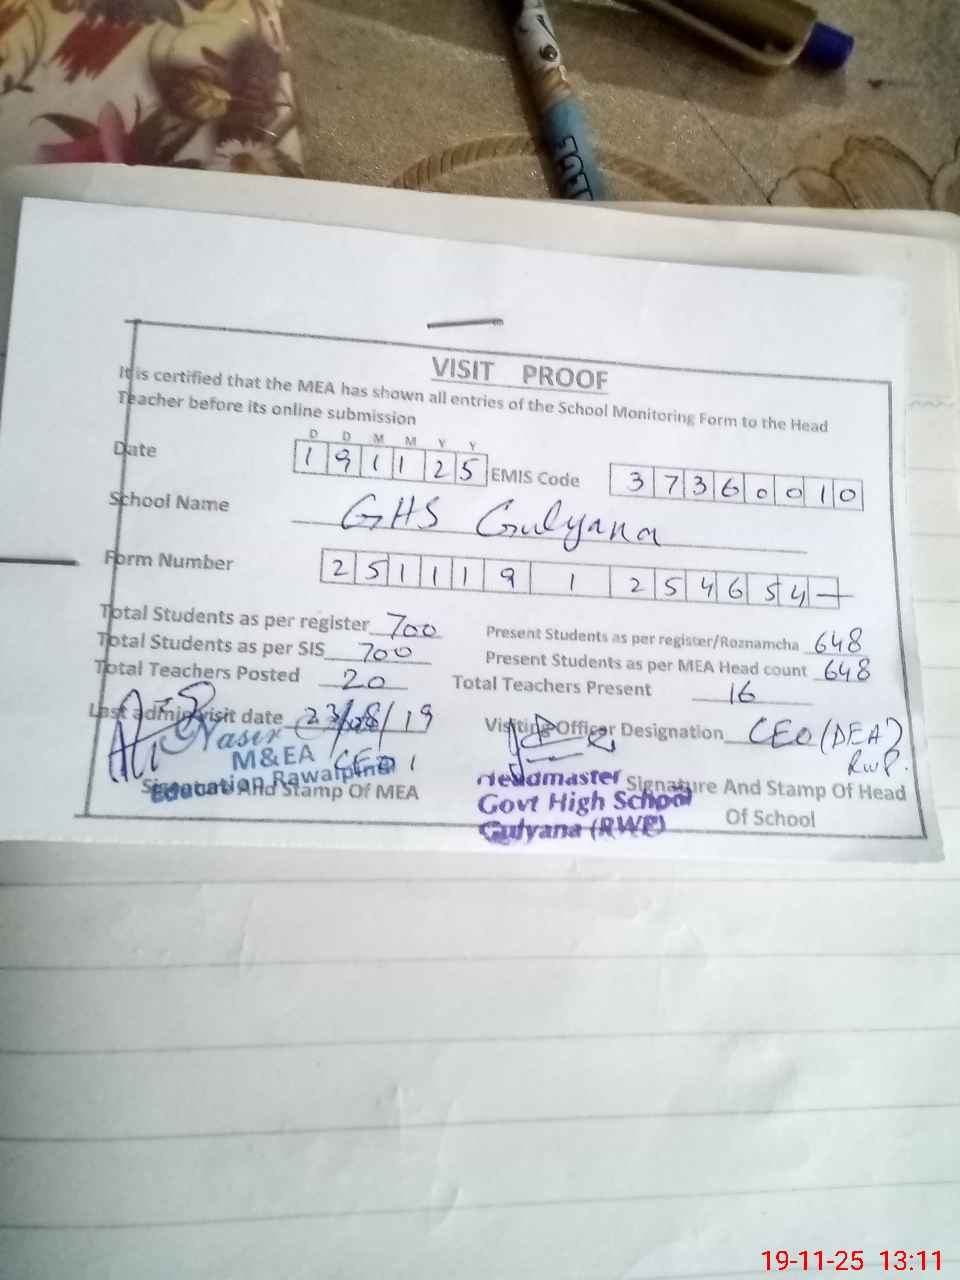 VISIT PROOF
It is certified that the MEA has shown all entries of the School Monitoring Form to the Head
Teacher before its online submission
D D M M Y Y
Date 1 9 1 1 2 5 EMIS Code 3 7 3 6 0 0 1 0
School Name GHS Gulyana
Form Number 2 5 1 1 1 9 1 2 5 4 6 5 4 —
Total Students as per register 700 Present Students as per register/Roznamcha 648
Total Students as per SIS 700 Present Students as per MEA Head count 648
Total Teachers Posted 20 Total Teachers Present 16
Last admin visit date 23/08/19 Visiting Officer Designation CEO (DEA)
RWP.
Nasir
M&EA
Education Rawalpindi
Signature And Stamp Of MEA
Headmaster
Govt High School
Gulyana (RWP)
Signature And Stamp Of Head
Of School
19-11-25 13:11